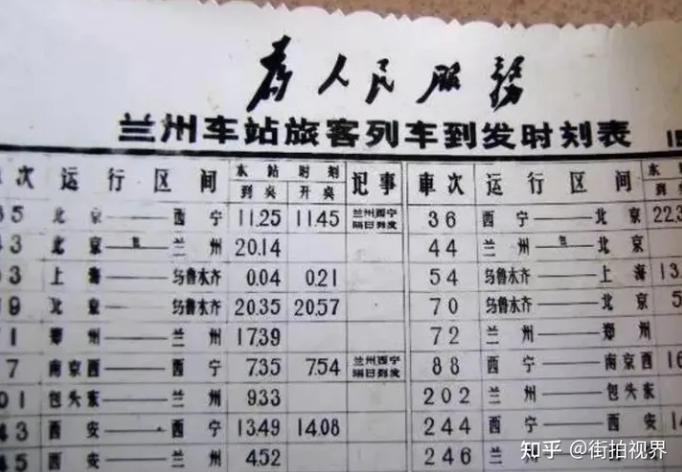 为人民服务
兰州车站旅客列车到发时刻表
次 运行区间 本站时刻 记事 车次 运行区间
到点 开点
35 北京——西宁 11.25 11.45 兰州西宁隔日到发 36 西宁——北京 22.3
43 北京—包—兰州 20.14 44 兰州—包—北京
53 上海——乌鲁木齐 0.04 0.21 54 乌鲁木齐——上海 13.
69 北京——乌鲁木齐 20.35 20.57 70 乌鲁木齐——北京 5
71 郑州——兰州 17.39 72 兰州——郑州
7 南京西——西宁 7.35 7.54 兰州西宁隔日到发 88 西宁——南京西 16
01 包头东——兰州 9.33 202 兰州——包头东
43 西安——西宁 13.49 14.08 244 西宁——西安
45 西安——兰州 4.52 246 兰州——西安
知乎 @街拍视界